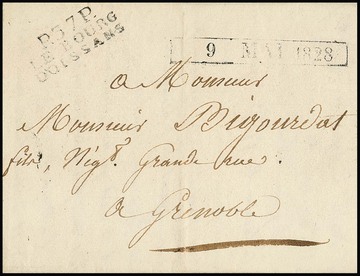 P.37.P.
LE BOURG
D'OISSANS
9 MAI 1828
a Monsieur
Monsieur Bigourdat
fils, Nég.t Grande rue.
a Grenoble